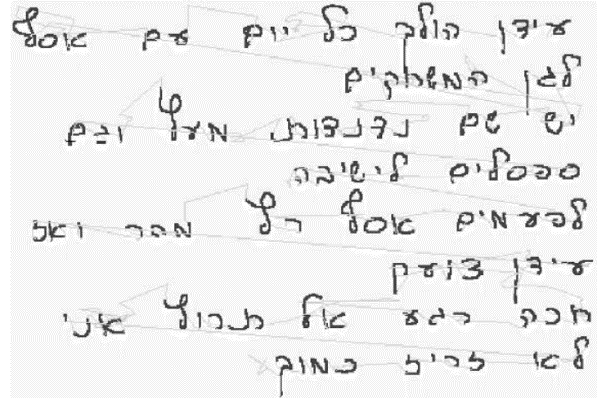 עידן הולך כל יום עם אסף
לגן המשחקים
יש שם נדנדות מעץ וגם
ספסלים לישיבה
לפעמים אסף רץ מהר ואז
עידן צועק
חכה רגע אל תרוץ אני
לא זריז כמוך